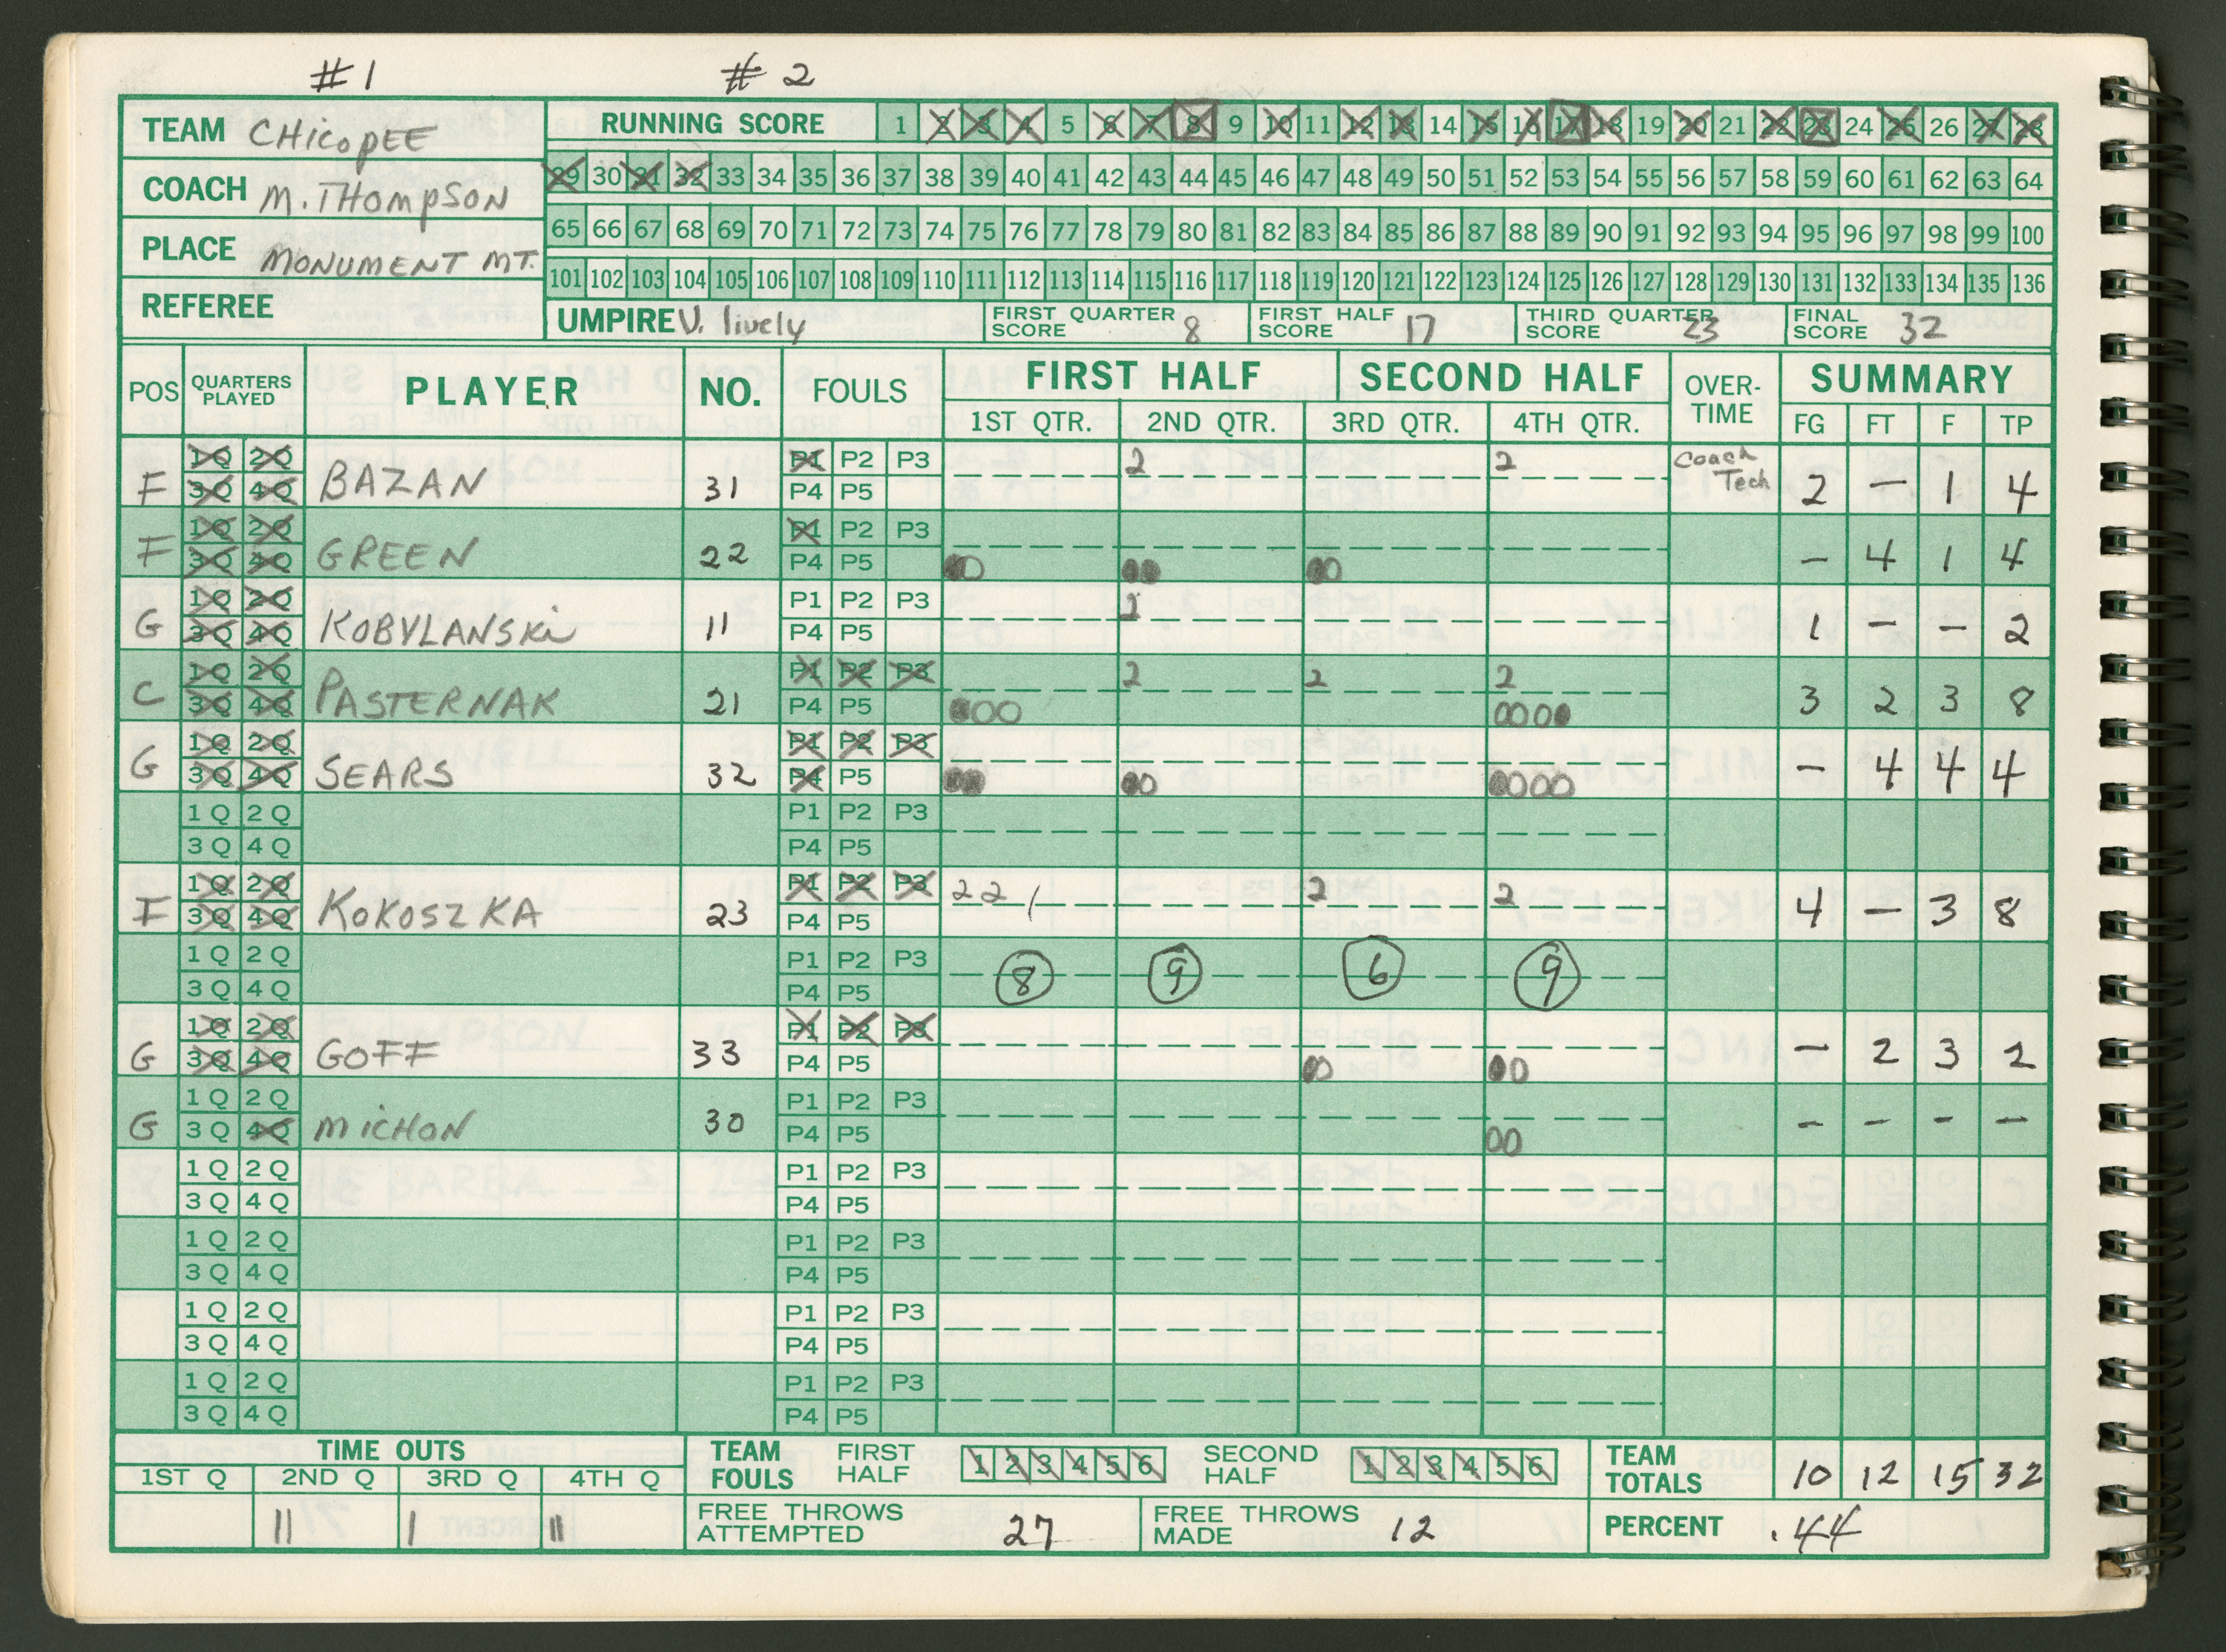 #1 #2
TEAM CHicopEE
COACH M. THompsON
PLACE MONUMENT MT.
REFEREE
RUNNING SCORE 1 2 3 4 5 6 7 8 9 10 11 12 13 14 15 16 17 18 19 20 21 22 23 24 25 26 27 28
29 30 31 32 33 34 35 36 37 38 39 40 41 42 43 44 45 46 47 48 49 50 51 52 53 54 55 56 57 58 59 60 61 62 63 64
65 66 67 68 69 70 71 72 73 74 75 76 77 78 79 80 81 82 83 84 85 86 87 88 89 90 91 92 93 94 95 96 97 98 99 100
101 102 103 104 105 106 107 108 109 110 111 112 113 114 115 116 117 118 119 120 121 122 123 124 125 126 127 128 129 130 131 132 133 134 135 136
UMPIRE V. lively FIRST QUARTER SCORE 8 FIRST HALF SCORE 17 THIRD QUARTER SCORE 23 FINAL SCORE 32
POS QUARTERS PLAYED PLAYER NO. FOULS FIRST HALF SECOND HALF OVER-TIME SUMMARY
1ST QTR. 2ND QTR. 3RD QTR. 4TH QTR. FG FT F TP
1Q 2Q P1 P2 P3 2 2 Coach Tech
F 3Q 4Q BAZAN 31 P4 P5 2 – 1 4
1Q 2Q P1 P2 P3
F 3Q 4Q GREEN 22 P4 P5 00 00 00 – 4 1 4
1Q 2Q P1 P2 P3 2
G 3Q 4Q KOBYLANSKi 11 P4 P5 1 – – 2
1Q 2Q P1 P2 P3 2 2 2
C 3Q 4Q PASTERNAK 21 P4 P5 000 0000 3 2 3 8
1Q 2Q P1 P2 P3
G 3Q 4Q SEARS 32 P4 P5 00 00 0000 – 4 4 4
1Q 2Q P1 P2 P3
3Q 4Q P4 P5
1Q 2Q P1 P2 P3 2 2 / 2 2
F 3Q 4Q KOKOSZKA 23 P4 P5 4 – 3 8
1Q 2Q P1 P2 P3 8 9 6 9
3Q 4Q P4 P5
1Q 2Q P1 P2 P3
G 3Q 4Q GOFF 33 P4 P5 00 00 – 2 3 2
1Q 2Q P1 P2 P3
G 3Q 4Q MICHON 30 P4 P5 00 – – – –
1Q 2Q P1 P2 P3
3Q 4Q P4 P5
1Q 2Q P1 P2 P3
3Q 4Q P4 P5
1Q 2Q P1 P2 P3
3Q 4Q P4 P5
1Q 2Q P1 P2 P3
3Q 4Q P4 P5
TIME OUTS TEAM FOULS FIRST HALF 1 2 3 4 5 6 SECOND HALF 1 2 3 4 5 6 TEAM TOTALS 10 12 15 32
1ST Q 2ND Q 3RD Q 4TH Q
|| | || FREE THROWS ATTEMPTED 27 FREE THROWS MADE 12 PERCENT .44